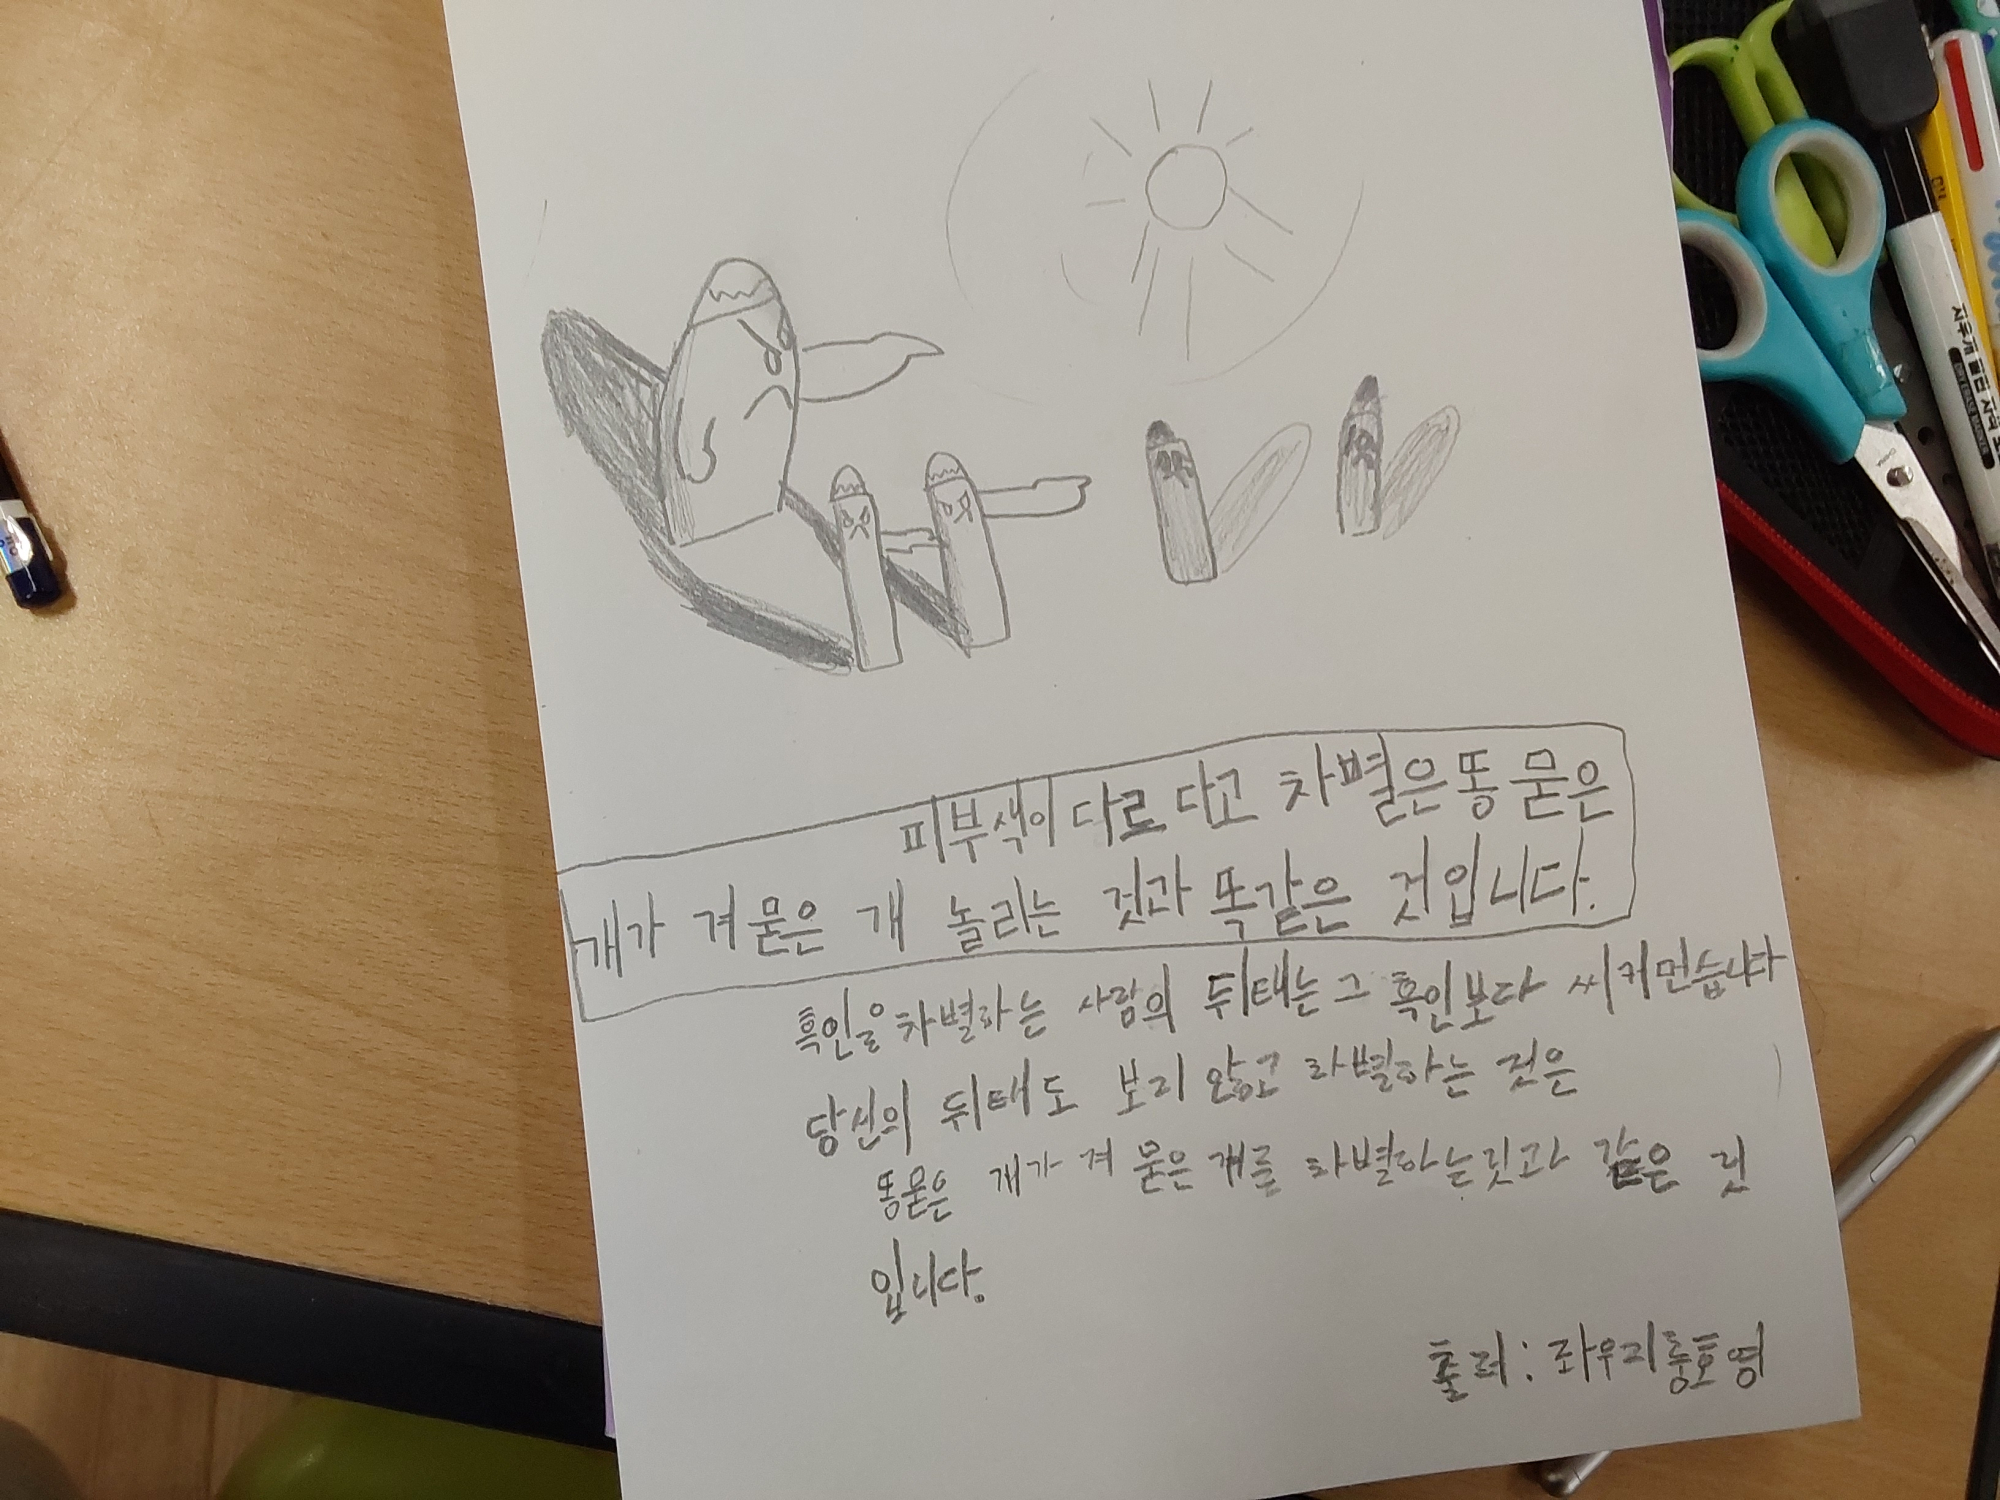 피부색이 다르다고 차별은 똥 묻은
개가 겨묻은 개 놀리는 것과 똑같은 것입니다.
흑인을 차별하는 사람의 뒤태는 그 흑인보다 씨커먼습니다
당신의 뒤태도 보지 않고 차별하는 것은
똥묻은 개가 겨 묻은 개를 차별하는것과 같은 것
입니다.
출처: 좌우지퉁호영
지우개 달린
DRY ERASE MARKER
CHINA